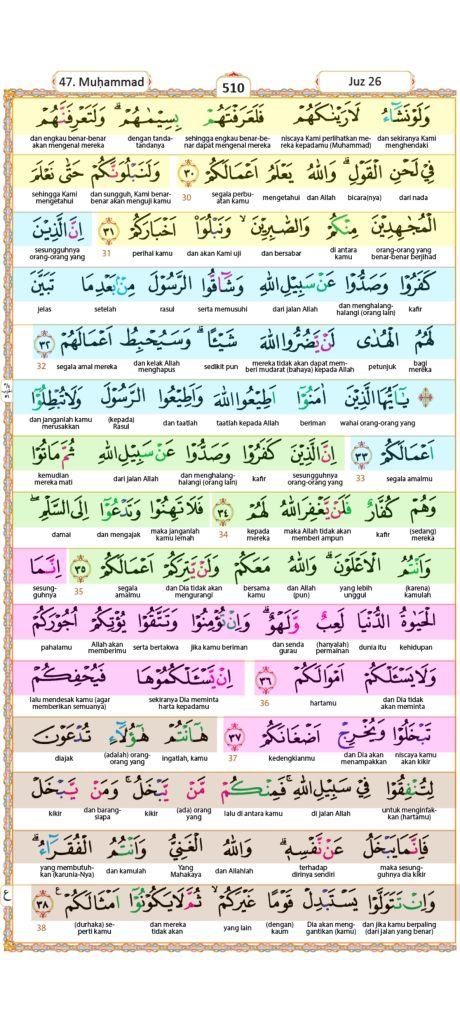 47. Muḥammad
510
Juz 26
وَلَوْ نَشَاۤءُ لَاَرَيْنٰكَهُمْ فَلَعَرَفْتَهُمْ بِسِيْمٰهُمْ ۗ وَلَتَعْرِفَنَّهُمْ
dan sekiranya Kami menghendaki niscaya Kami perlihatkan mereka kepadamu (Muhammad) sehingga engkau benar-benar dapat mengenal mereka dengan tanda-tandanya dan engkau benar-benar akan mengenal mereka
فِيْ لَحْنِ الْقَوْلِ ۗ وَاللّٰهُ يَعْلَمُ اَعْمَالَكُمْ ٣٠ وَلَنَبْلُوَنَّكُمْ حَتّٰى نَعْلَمَ
dari nada bicara(nya) dan Allah mengetahui segala perbuatan kamu 30 dan sungguh, Kami benar-benar akan menguji kamu sehingga Kami mengetahui
الْمُجٰهِدِيْنَ مِنْكُمْ وَالصّٰبِرِيْنَ ۙ وَنَبْلُوَا۟ اَخْبَارَكُمْ ٣١ اِنَّ الَّذِيْنَ
orang-orang yang benar-benar berjihad di antara kamu dan bersabar dan akan Kami uji perihal kamu 31 sesungguhnya orang-orang yang
كَفَرُوْا وَصَدُّوْا عَنْ سَبِيْلِ اللّٰهِ وَشَاۤقُّوا الرَّسُوْلَ مِنْۢ بَعْدِ مَا تَبَيَّنَ
kafir dan menghalang-halangi (orang lain) dari jalan Allah serta memusuhi rasul setelah jelas
لَهُمُ الْهُدٰى لَنْ يَّضُرُّوا اللّٰهَ شَيْـًٔا ۗ وَسَيُحْبِطُ اَعْمَالَهُمْ ٣٢
bagi mereka petunjuk mereka tidak akan dapat memberi mudarat (bahaya) kepada Allah sedikit pun dan kelak Allah menghapus segala amal mereka 32
يٰٓاَيُّهَا الَّذِيْنَ اٰمَنُوْٓا اَطِيْعُوا اللّٰهَ وَاَطِيْعُوا الرَّسُوْلَ وَلَا تُبْطِلُوْٓا
wahai orang-orang yang beriman taatlah kepada Allah dan taatlah (kepada) Rasul dan janganlah kamu merusakkan
اَعْمَالَكُمْ ٣٣ اِنَّ الَّذِيْنَ كَفَرُوْا وَصَدُّوْا عَنْ سَبِيْلِ اللّٰهِ ثُمَّ مَاتُوْا
segala amalmu 33 sesungguhnya orang-orang yang kafir dan menghalang-halangi (orang lain) dari jalan Allah kemudian mereka mati
وَهُمْ كُفَّارٌ فَلَنْ يَّغْفِرَ اللّٰهُ لَهُمْ ٣٤ فَلَا تَهِنُوْا وَتَدْعُوْٓا اِلَى السَّلْمِ ۖ
(sedang) mereka kafir maka Allah tidak akan memberi ampun kepada mereka 34 maka janganlah kamu lemah dan mengajak damai
وَاَنْتُمُ الْاَعْلَوْنَ ۗ وَاللّٰهُ مَعَكُمْ وَلَنْ يَّتِرَكُمْ اَعْمَالَكُمْ ٣٥ اِنَّمَا
(karena) kamulah yang lebih unggul dan Allah (pun) bersama kamu dan Dia tidak akan mengurangi segala amalmu 35 sesungguhnya
الْحَيٰوةُ الدُّنْيَا لَعِبٌ وَّلَهْوٌ ۗ وَاِنْ تُؤْمِنُوْا وَتَتَّقُوْا يُؤْتِكُمْ اُجُوْرَكُمْ
kehidupan dunia itu (hanyalah) permainan dan senda gurau jika kamu beriman serta bertakwa Allah akan memberimu pahalamu
وَلَا يَسْـَٔلْكُمْ اَمْوَالَكُمْ ٣٦ اِنْ يَّسْـَٔلْكُمُوْهَا فَيُحْفِكُمْ
dan Dia tidak akan meminta hartamu 36 sekiranya Dia meminta harta kepadamu lalu mendesak kamu (agar memberikan semuanya)
تَبْخَلُوْا وَيُخْرِجْ اَضْغَانَكُمْ ٣٧ هٰٓاَنْتُمْ هٰٓؤُلَاۤءِ تُدْعَوْنَ
niscaya kamu akan kikir dan Dia akan menampakkan kedengkianmu 37 ingatlah, kamu (adalah) orang-orang yang diajak
لِتُنْفِقُوْا فِيْ سَبِيْلِ اللّٰهِ ۚ فَمِنْكُمْ مَّنْ يَّبْخَلُ ۚ وَمَنْ يَّبْخَلْ
untuk menginfakkan (hartamu) di jalan Allah lalu di antara kamu (ada) orang yang kikir dan barangsiapa kikir
فَاِنَّمَا يَبْخَلُ عَنْ نَّفْسِهٖ ۗ وَاللّٰهُ الْغَنِيُّ وَاَنْتُمُ الْفُقَرَاۤءُ ۗ
maka sesungguhnya dia kikir terhadap dirinya sendiri dan Allahlah Yang Mahakaya dan kamulah yang membutuhkan (karunia-Nya)
وَاِنْ تَتَوَلَّوْا يَسْتَبْدِلْ قَوْمًا غَيْرَكُمْ ۙ ثُمَّ لَا يَكُوْنُوْٓا اَمْثَالَكُمْ ٣٨
dan jika kamu berpaling (dari jalan yang benar) Dia akan mengantikan (kamu) (dengan) kaum yang lain dan mereka tidak akan (durhaka) seperti kamu 38
ع